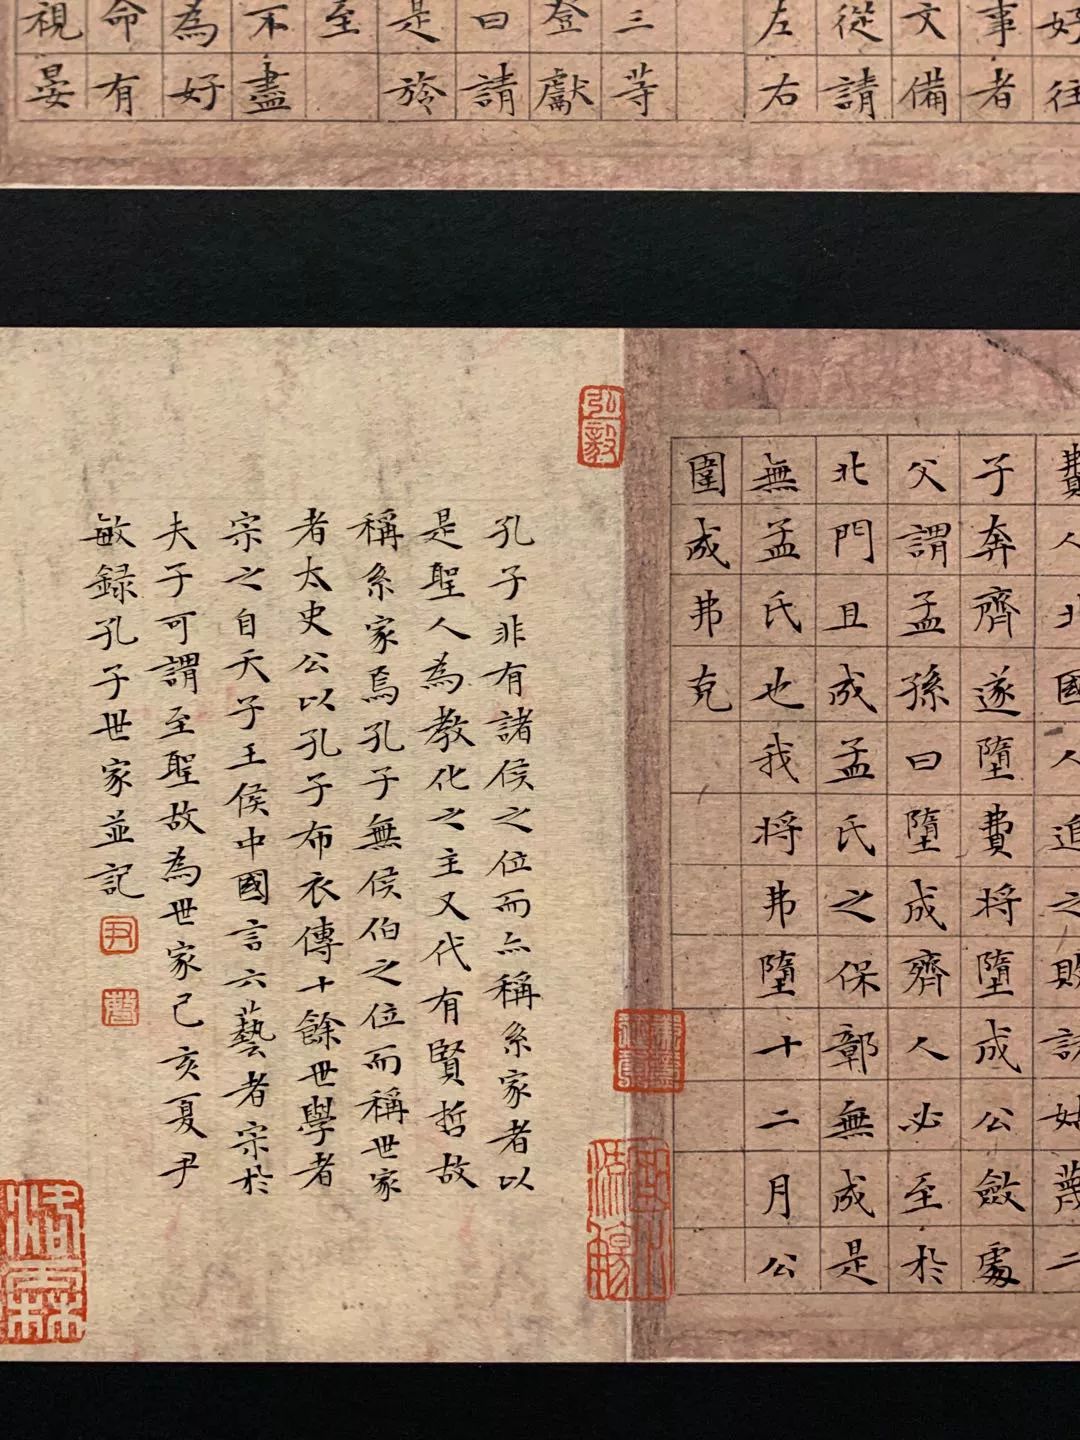 好往
事者
文備
從請
左右
三等
登獻
曰請
是旍
至
不盡
為好
命有
視晏
費人北國人追之敗諸姑蔑二
子奔齊遂墮費將墮成公斂處
父謂孟孫曰墮成齊人必至於
北門且成孟氏之保鄣無成是
無孟氏也我將弗墮十二月公
圍成弗克
弘毅
孔子非有諸侯之位而亦稱系家者以
是聖人為教化之主又代有賢哲故
稱系家焉孔子無侯伯之位而稱世家
者太史公以孔子布衣傳十餘世學者
宗之自天子王侯中國言六藝者宗於
夫子可謂至聖故為世家己亥夏尹
敏錄孔子世家並記
尹